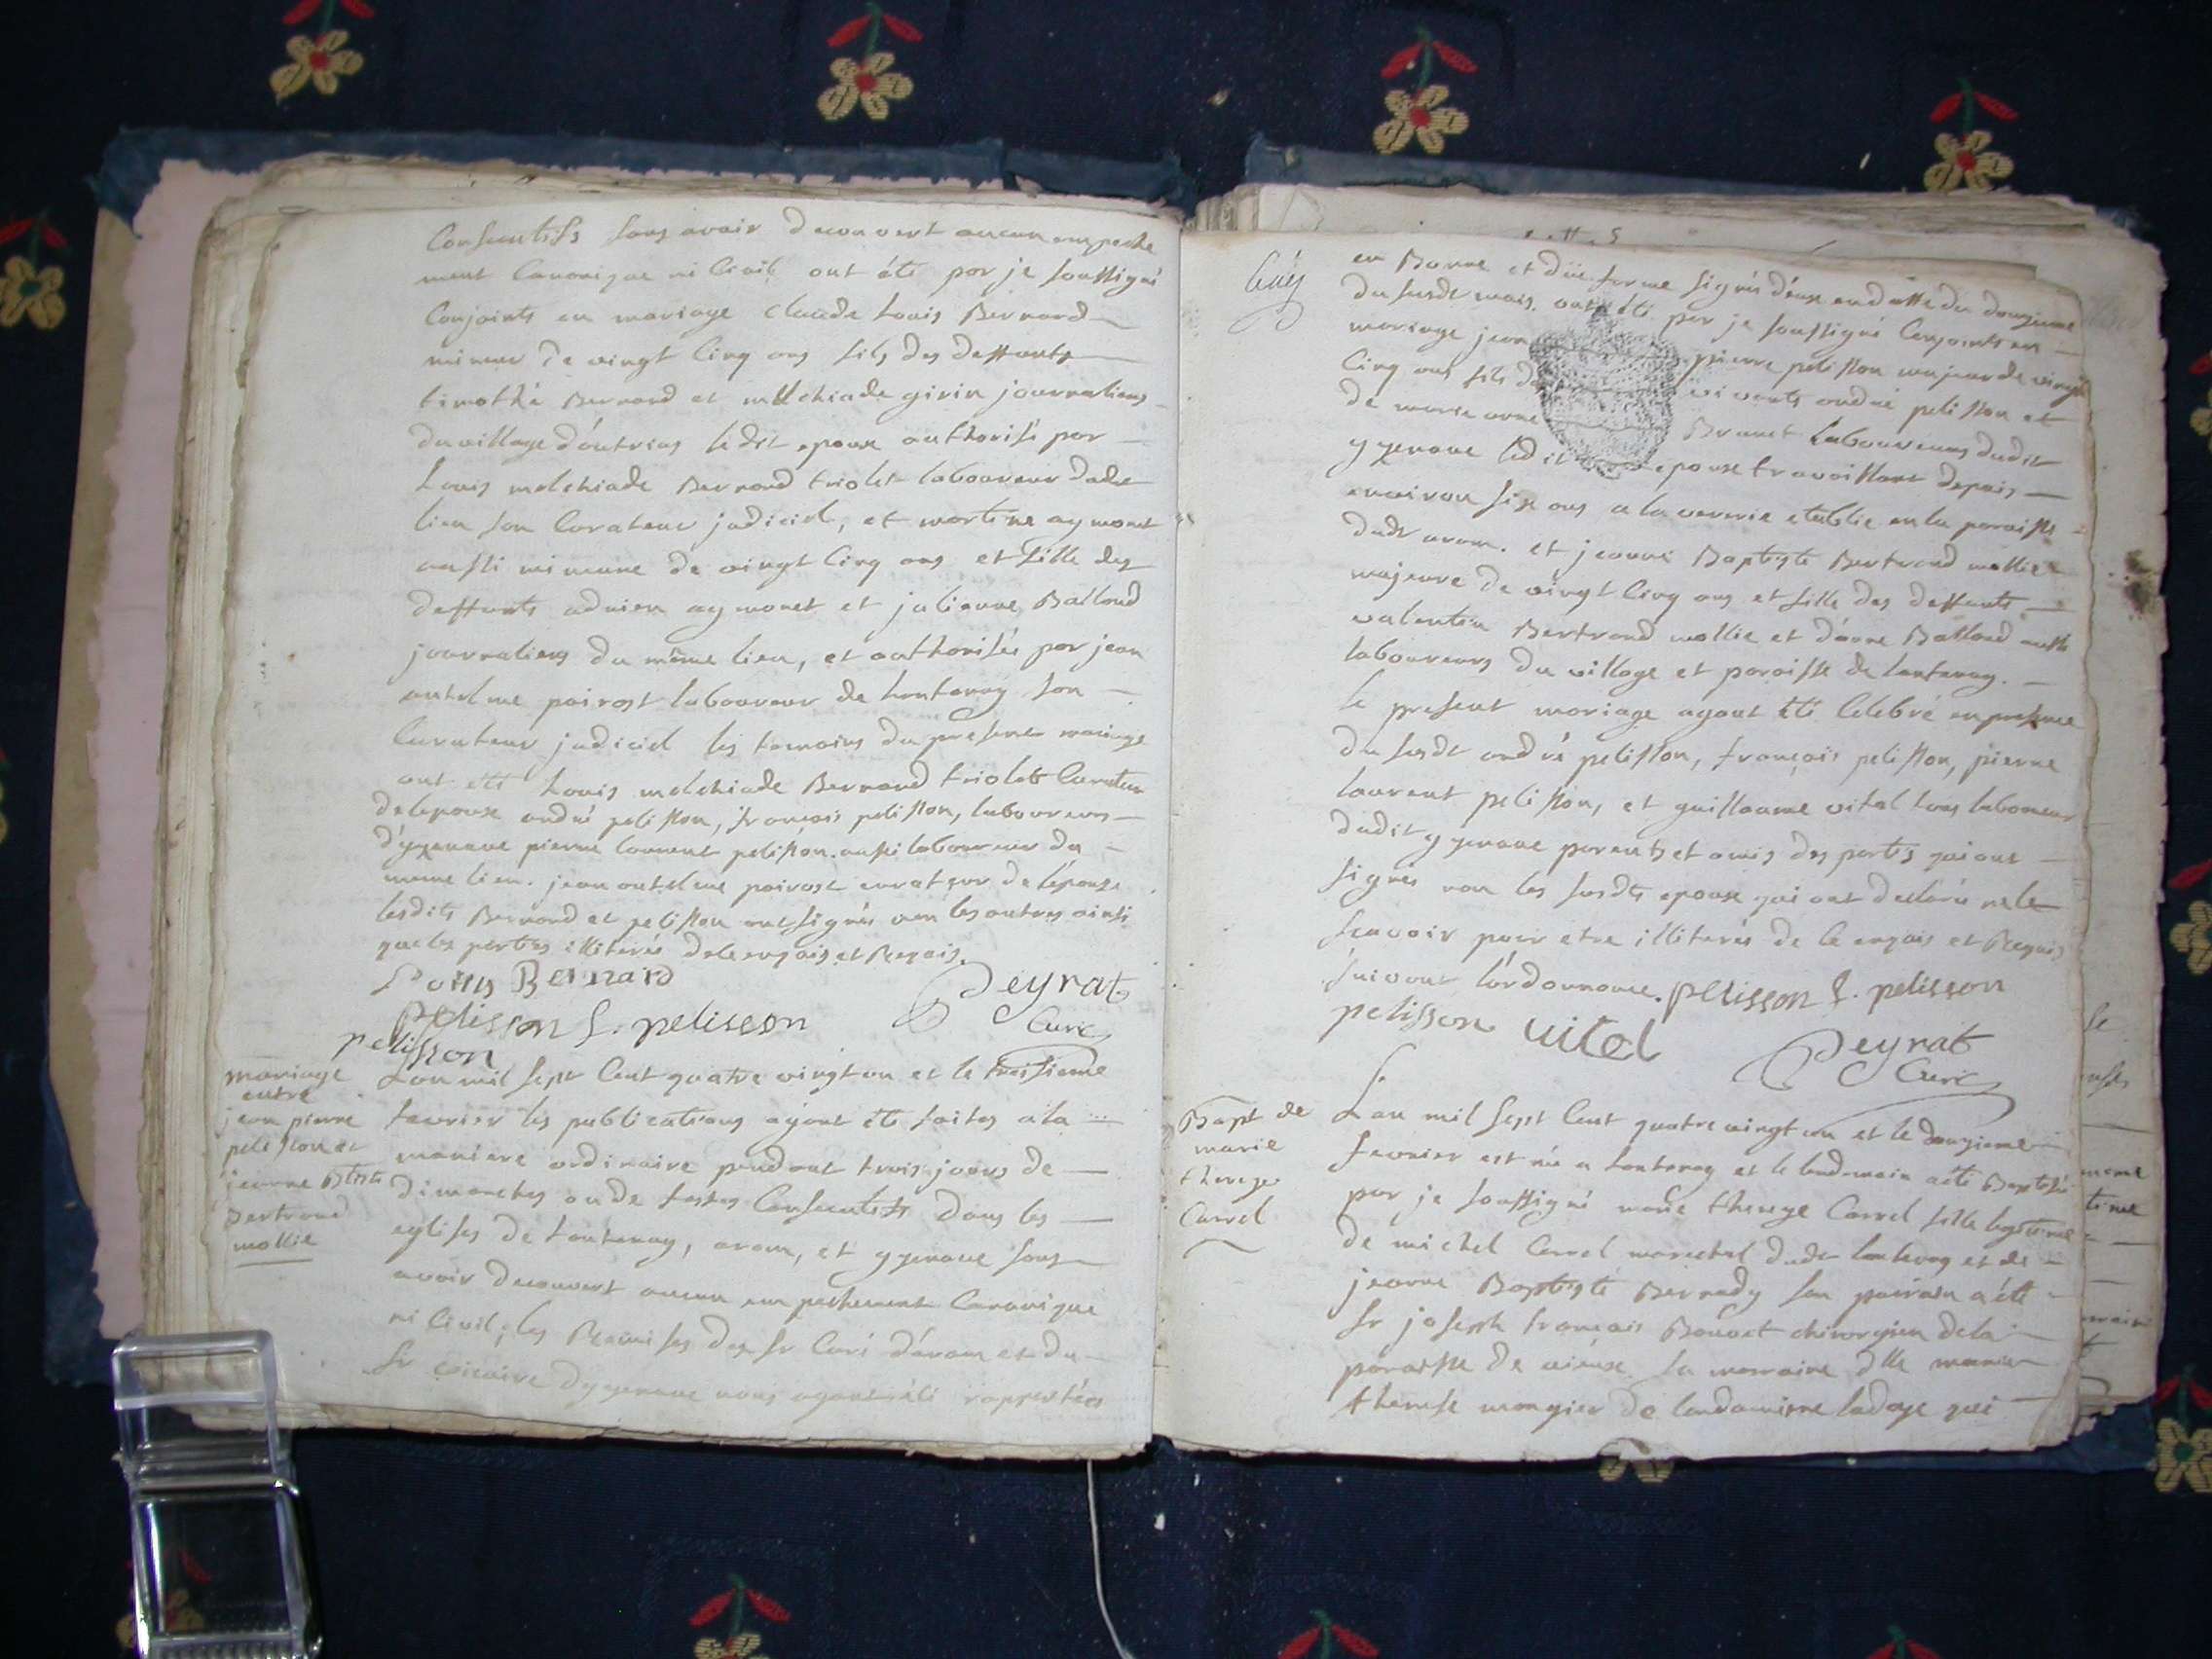 Consecutifs sans avoir decouvert aucun empeche
ment Canonique ni Civil ont été par je soussigné
Conjoints en mariage claude Louis Bernard
mineur de vingt Cinq ans fils des deffunts
timothé Bernard et melchiade girin journaliers
du village d'outriaz ledit epoux authorisé par
Louis melchiade Bernard triolet laboureur dudit
lieu son Curateur judiciel, et martine aymonet
aussi mineure de vingt Cinq ans et fille des
deffunts adrien aymonet et julienne Balland
journaliers du même lieu, et authorisée par jean
antelme poirost laboureur de Lantenay son
Curateur judiciel les temoins du present mariage
ont été Louis melchiade Bernard triolet Curateur
de lepoux andré pelisson, françois pelisson, laboureurs
d'yzenave pierre laurent pelisson aussi laboureur du
meme lieu. jean antelme poirost curateur de l'epouze
lesdits Bernard et pelisson ont signés non les autres ainsi
que les parties illiterés de ce enquis et Requis.
Louis Bernard
Peyrat
Curé
pelisson f. pelisson
pelisson
mariage
entre
jean pierre
pelisson et
jeanne Btste
Bertrand
mollie
L'an mil sept Cent quatre vingt un et le treisieme
fevrier les publications ayant été faites a la
maniere ordinaire pendant trois jours de
dimanches ou de festes Consecutifs dans les
eglises de Lantenay, aran, et yzenave sans
avoir decouvert aucun empechement Canonique
ni Civil; les Remises des sr Curé d'aran et du
sr vicaire d'yzenave nous ayant été rapportées
en Bonne et düe forme signés d'eux en datte du douzieme
du susdt mois. ont été par je soussigné Conjoints en
mariage jean pierre pelisson majeur de vingt
Cinq ans fils de vivants andré pelisson et
de marie anne Brunet laboureurs dudit
yzenave ledit epoux travaillant depuis
environ six ans a la verrerie etablie en la paroisse
dudt aran. et jeanne Baptiste Bertrand mollie
majeure de vingt Cinq ans et fille des deffunts
valentin Bertrand mollie et d'anne Balland
laboureurs du village et paroisse de lantenay.
le present mariage ayant été Celebré en presence
du susdt andré pelisson, françois pelisson, pierre
laurent pelisson, et guillaume vital tous laboureurs
dudit yzenave parents et amis des partis qui ont
signés non les susdts epoux qui ont declaré ne le
scavoir pour etre illiterés de ce enquis et Requis
suivant l'ordonnance. pelisson f. pelisson
pelisson vital
Peyrat
Curé
Bapt de
marie
thereze
Carrel
L'an mil sept Cent quatre vingt un et le douzieme
fevrier est née a Lantenay et le lendemain a été Baptisée
par je soussigné marie thereze Carrel fille legitime
de michel Carrel marechal dudt lantenay et de
jeanne Baptiste Bernady son parrain a été
sr joseph françois Bonnet chirurgien de la
paroisse de vieux la marraine dlle marie
therese qui